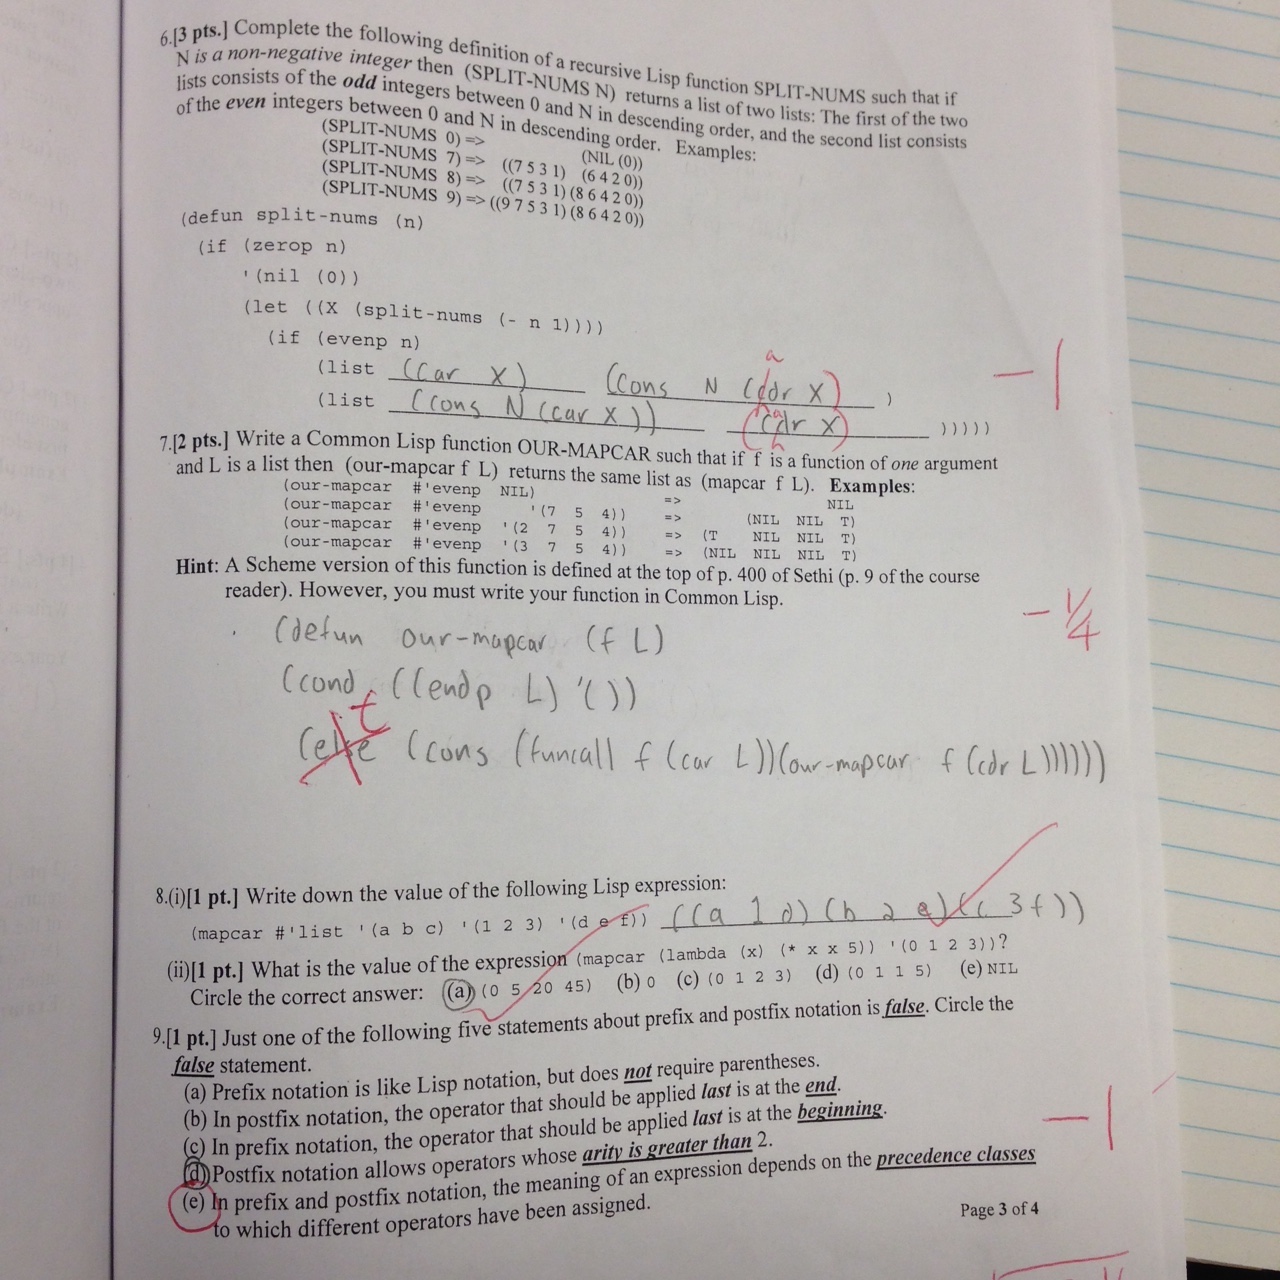 6.[3 pts.] Complete the following definition of a recursive Lisp function SPLIT-NUMS such that if
N is a non-negative integer then (SPLIT-NUMS N) returns a list of two lists: The first of the two
lists consists of the odd integers between 0 and N in descending order, and the second list consists
of the even integers between 0 and N in descending order. Examples:
(SPLIT-NUMS 0) => (NIL (0))
(SPLIT-NUMS 7) => ((7 5 3 1) (6 4 2 0))
(SPLIT-NUMS 8) => ((7 5 3 1) (8 6 4 2 0))
(SPLIT-NUMS 9) => ((9 7 5 3 1) (8 6 4 2 0))
(defun split-nums (n)
(if (zerop n)
'(nil (0))
(let ((X (split-nums (- n 1))))
(if (evenp n)
a
(list (car X) (cons N (cdr X) )
-1
(list (cons N (car X)) (cdr X) )))))
7.[2 pts.] Write a Common Lisp function OUR-MAPCAR such that if f is a function of one argument
and L is a list then (our-mapcar f L) returns the same list as (mapcar f L). Examples:
(our-mapcar #'evenp NIL) => NIL
(our-mapcar #'evenp '(7 5 4)) => (NIL NIL T)
(our-mapcar #'evenp '(2 7 5 4)) => (T NIL NIL T)
(our-mapcar #'evenp '(3 7 5 4)) => (NIL NIL NIL T)
Hint: A Scheme version of this function is defined at the top of p. 400 of Sethi (p. 9 of the course
reader). However, you must write your function in Common Lisp.
-1/4
(defun our-mapcar (f L)
(cond ((endp L) '())
t
(else (cons (funcall f (car L))(our-mapcar f (cdr L))))))
8.(i)[1 pt.] Write down the value of the following Lisp expression:
(mapcar #'list '(a b c) '(1 2 3) '(d e f)) ((a 1 d) (b 2 e) (c 3 f))
(ii)[1 pt.] What is the value of the expression (mapcar (lambda (x) (* x x 5)) '(0 1 2 3))?
Circle the correct answer: (a) (0 5 20 45) (b) 0 (c) (0 1 2 3) (d) (0 1 1 5) (e) NIL
9.[1 pt.] Just one of the following five statements about prefix and postfix notation is false. Circle the
false statement.
(a) Prefix notation is like Lisp notation, but does not require parentheses.
(b) In postfix notation, the operator that should be applied last is at the end.
(c) In prefix notation, the operator that should be applied last is at the beginning.
-1
(d) Postfix notation allows operators whose arity is greater than 2.
(e) In prefix and postfix notation, the meaning of an expression depends on the precedence classes
to which different operators have been assigned.
Page 3 of 4